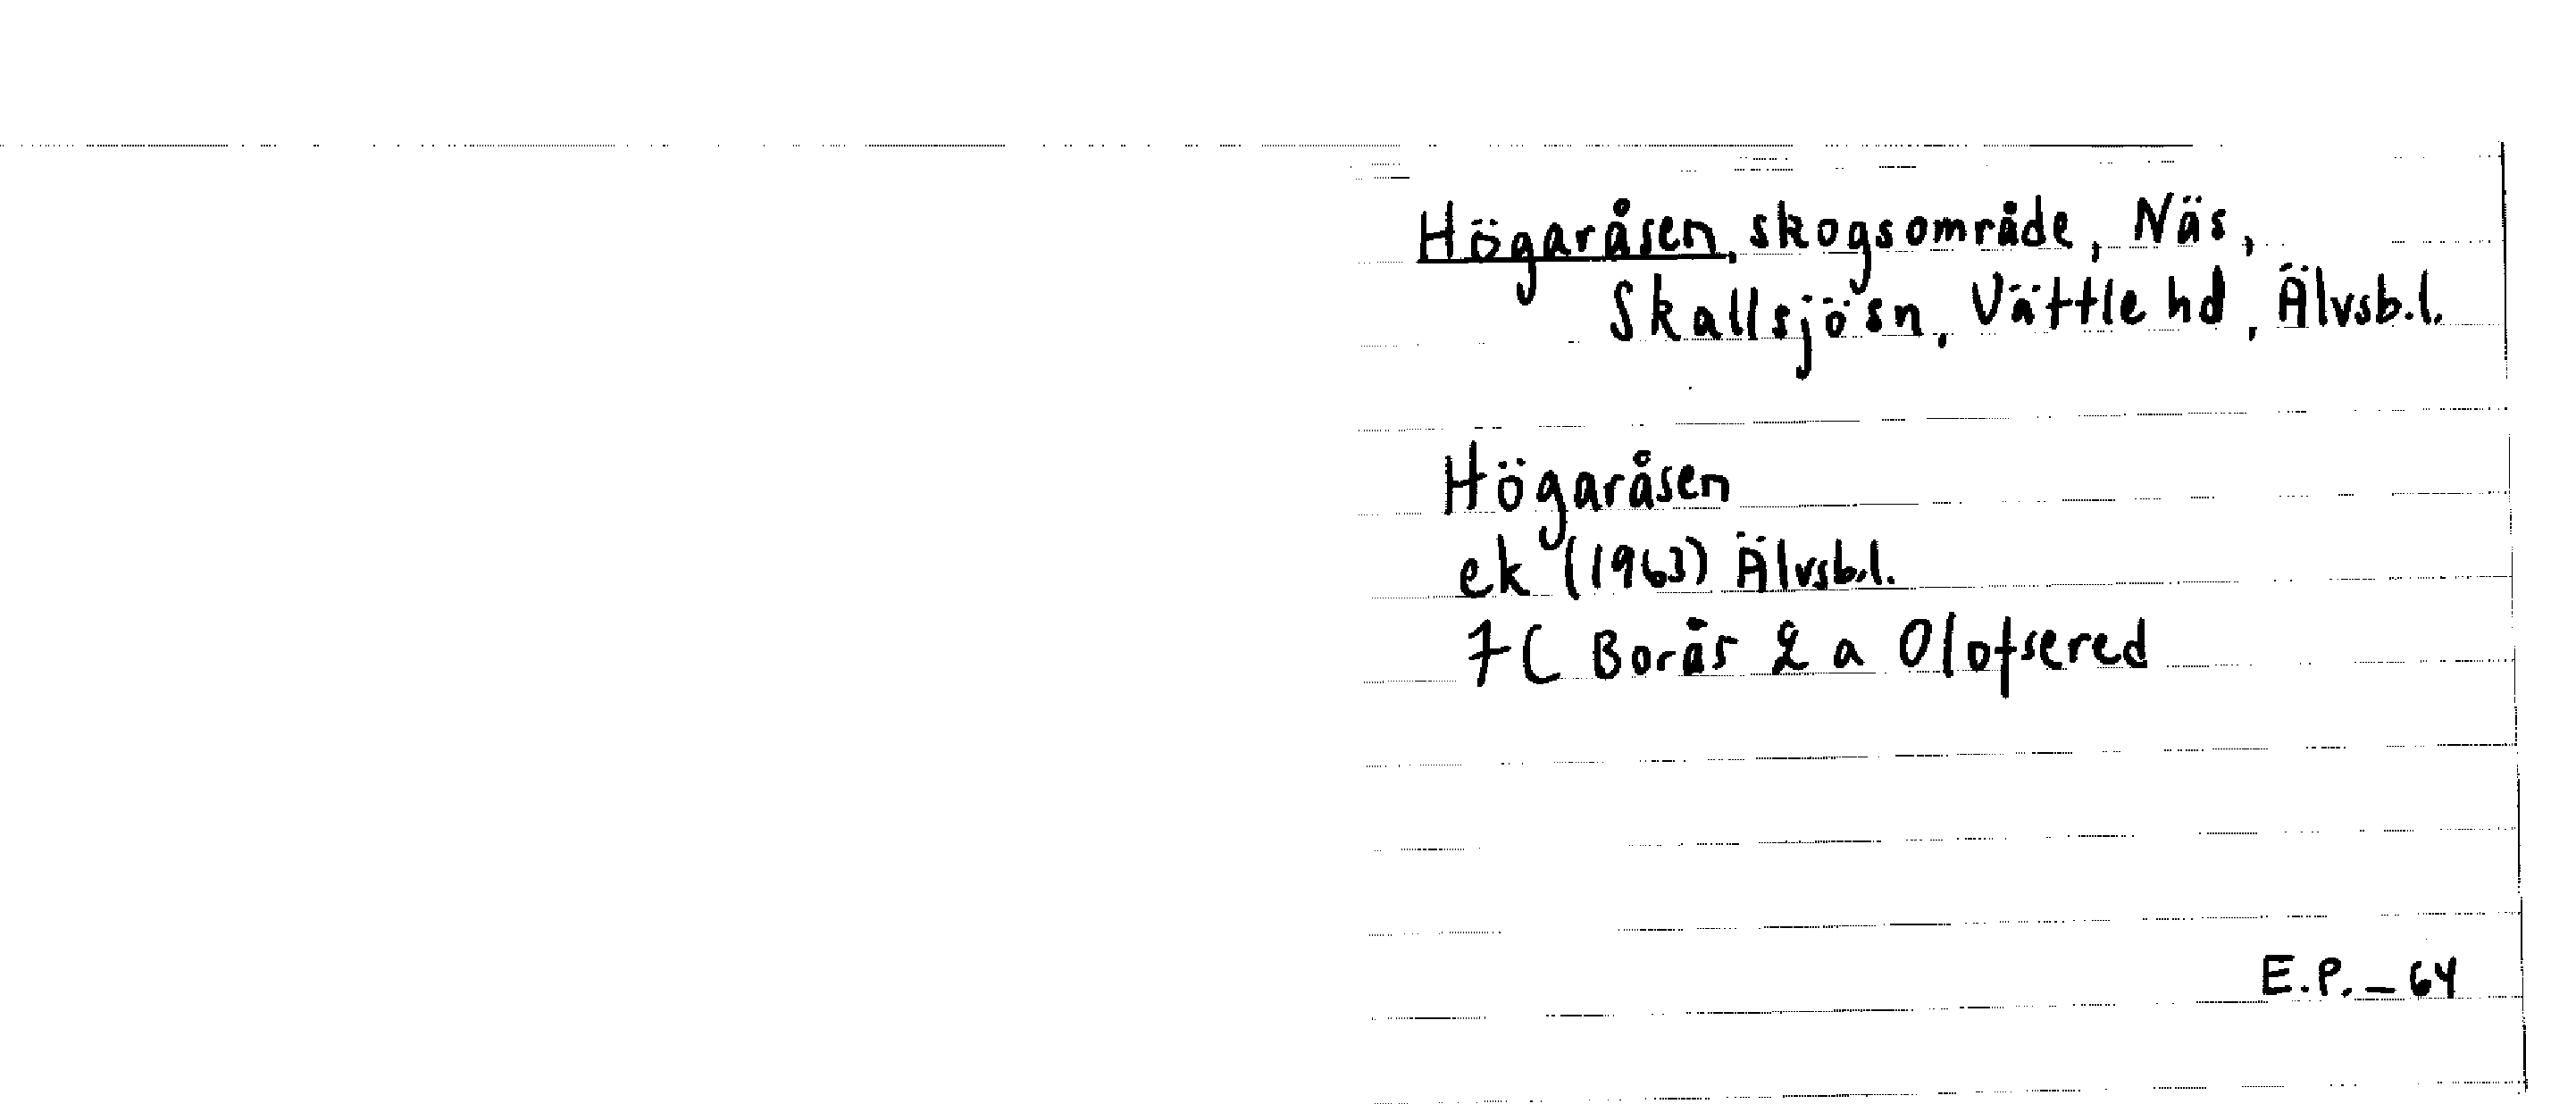 Högaråsen, skogsområde, Näs,
Skallsjösn, Vättle hd, Älvsb.l.
Högaråsen
ek (1963) Älvsb.l.
7C Borås 2 a Olofsered
E.P. – 64